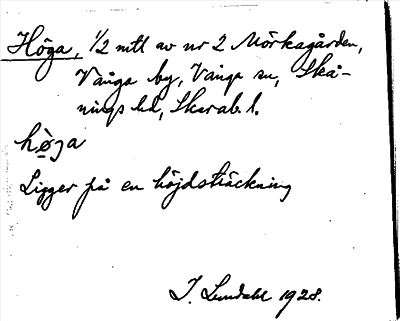 Höga, 1/2 mtl av nr 2 Mörkagården,
Vånga by, Vånga sn, Skå-
nings hd, Skarab. l.
hø̀ga
Ligger på en höjdsträckning
I. Lundahl 1928.